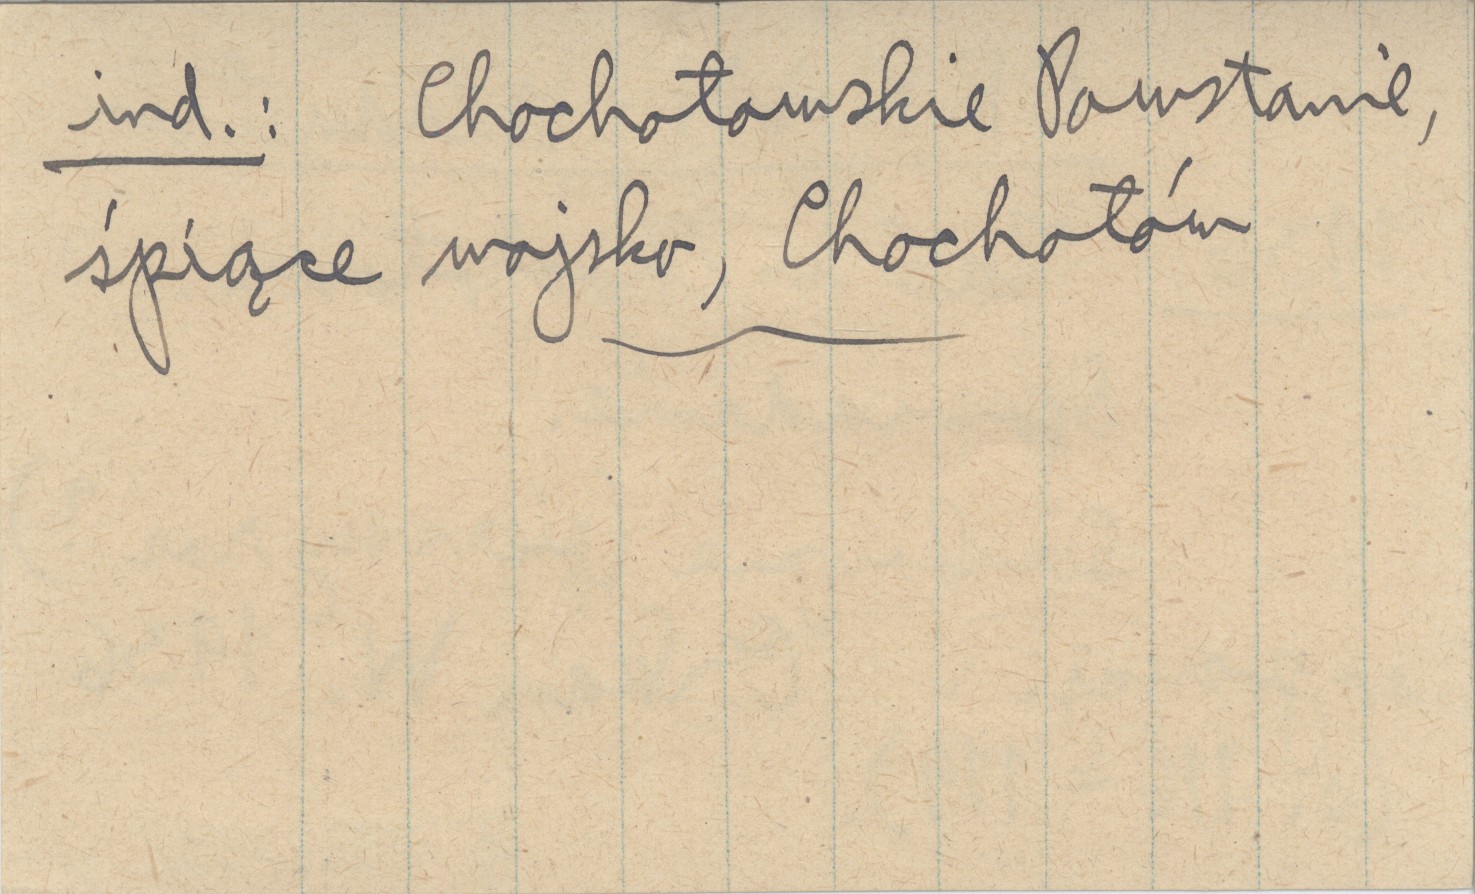 ind.: Chochołowskie Powstanie,
śpiące wojsko, Chochołów